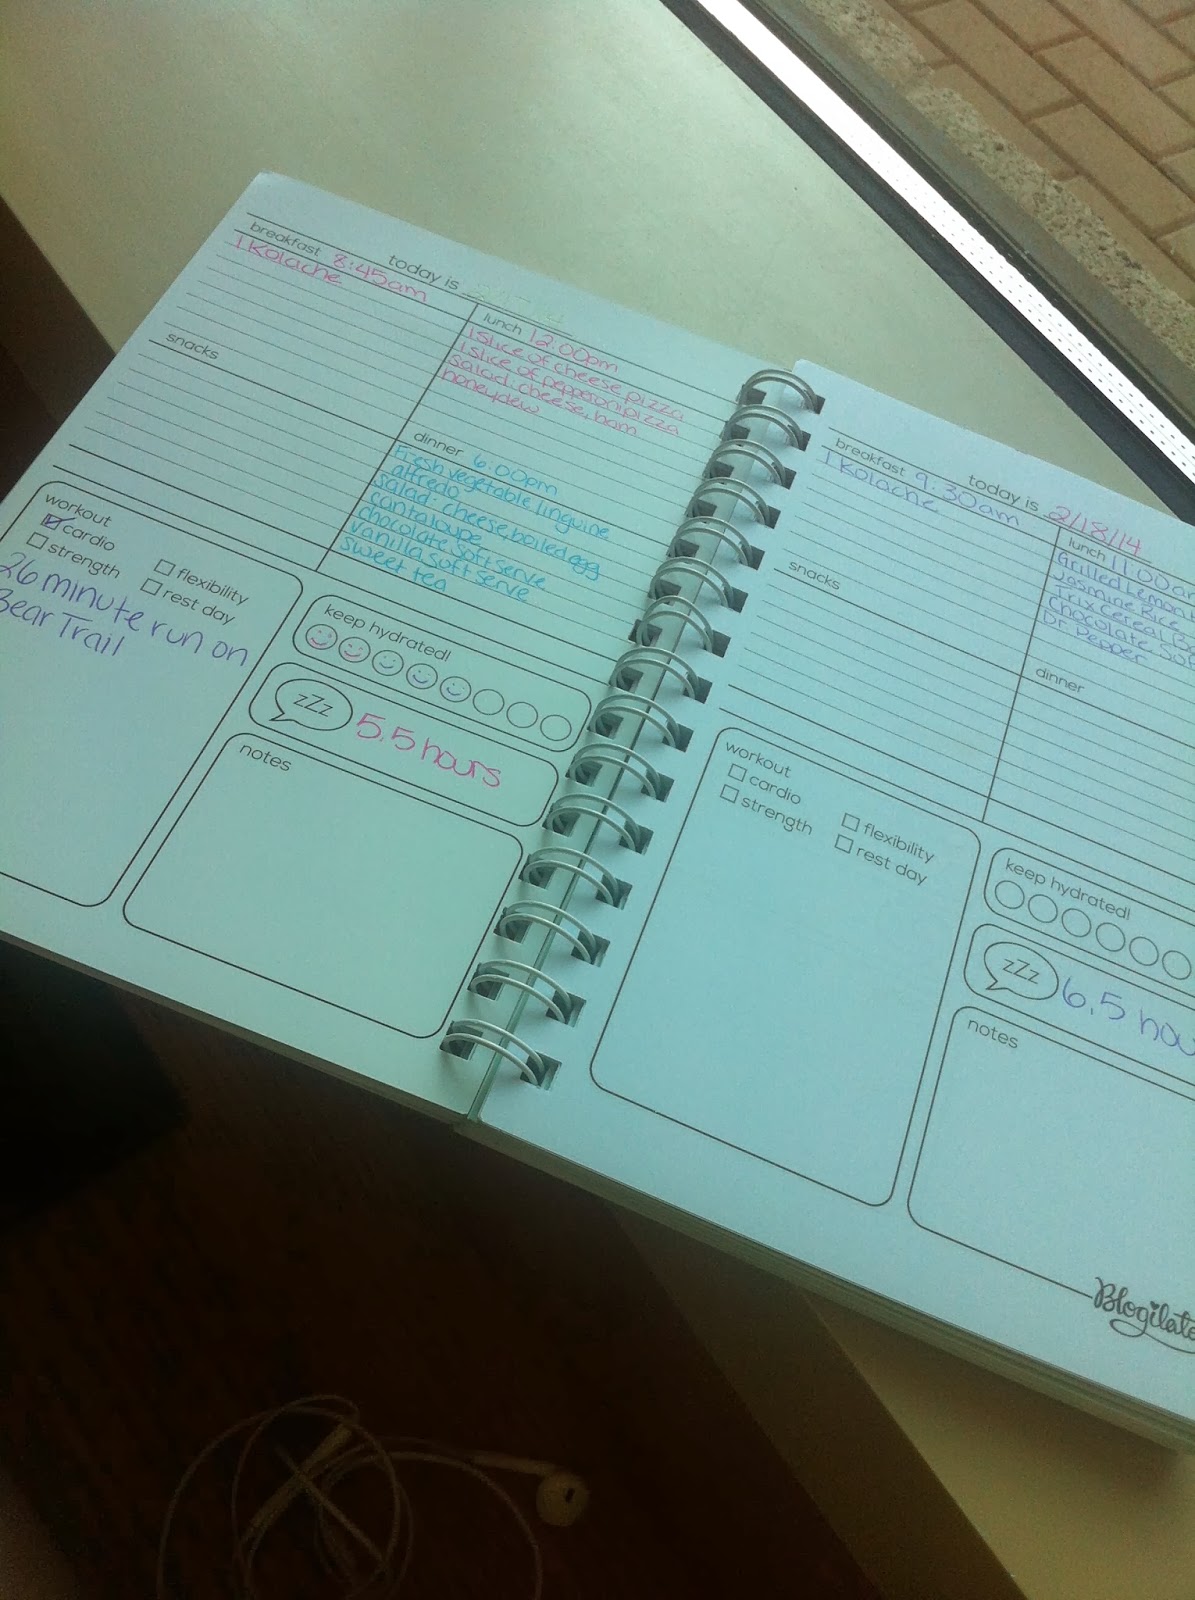 today is
breakfast 8:45am
1 Kolache
snacks
lunch 12:00pm
1 slice of cheese pizza
1 slice of pepperoni pizza
salad: cheese, ham
honeydew
dinner 6:00pm
Fresh vegetable linguine
alfredo
salad: cheese, boiled egg
cantaloupe
chocolate soft serve
vanilla soft serve
sweet tea
workout
cardio
strength
flexibility
rest day
26 minute run on
Bear Trail
keep hydrated!
zZz 5.5 hours
notes
today is 2/18/14
breakfast 9:30am
1 Kolache
snacks
lunch 11:00am
Grilled Lemon
Jasmine Rice
Trix Cereal
Chocolate
Dr. Pepper
dinner
workout
cardio
strength
flexibility
rest day
keep hydrated!
zZz 6.5 hou
notes
Blogilate